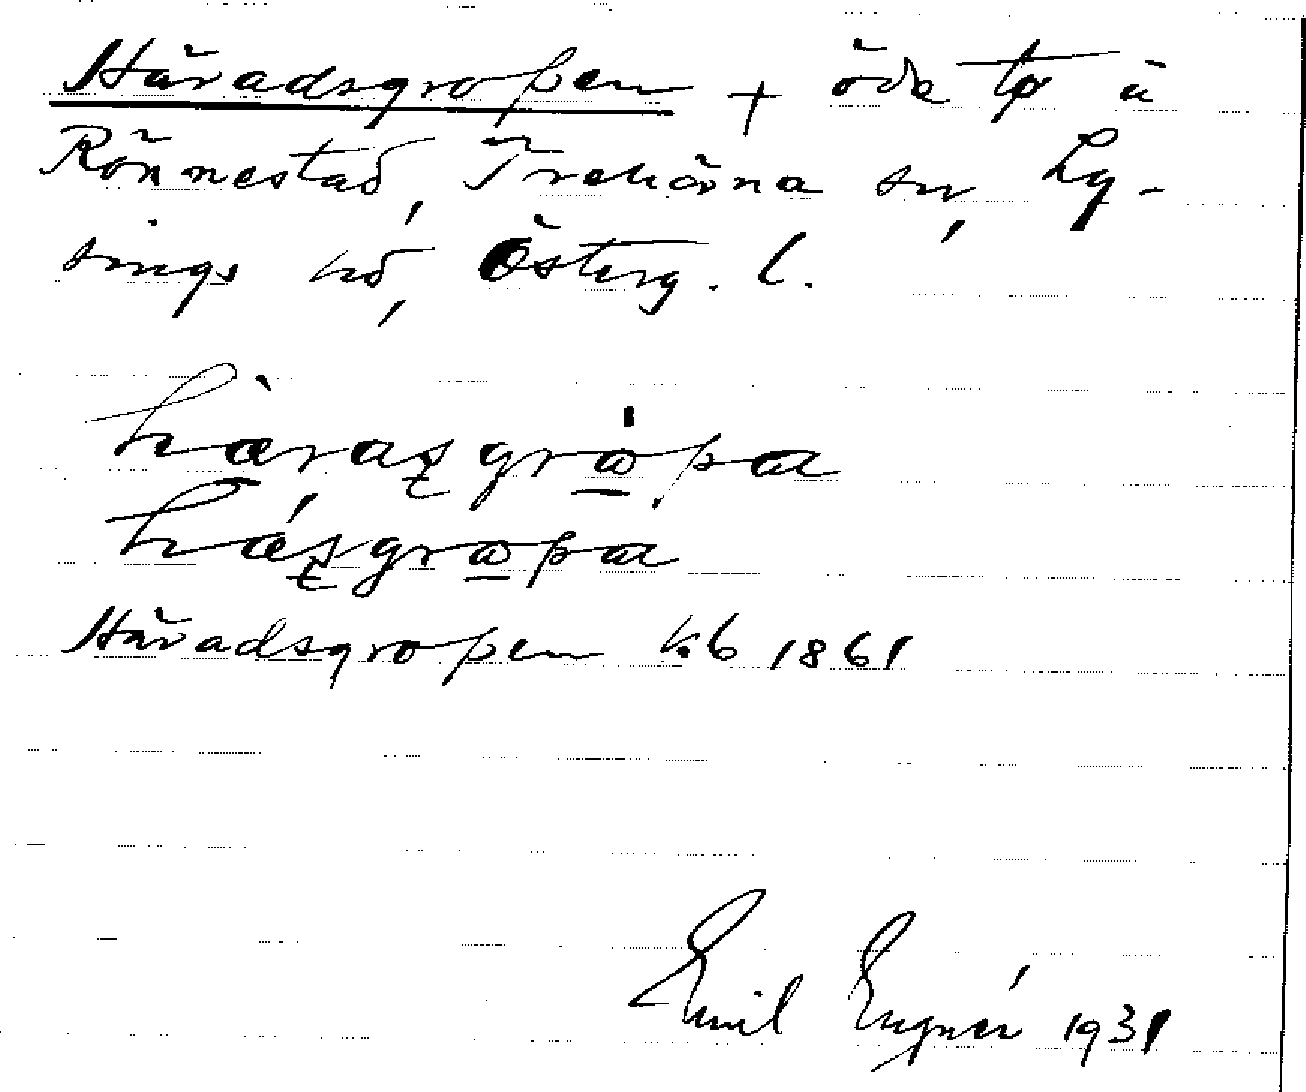 Häradsgropen + öde tp å
Rönnestad, Trehörna sn, Ly-
sings hd, Österg. l.
hàrazgrȧpa
házgrapa
Häradsgropen kb 1861
Emil Engnér 1931